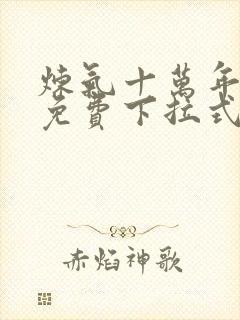 煉氣十萬年
免費下拉式
赤焰神歌